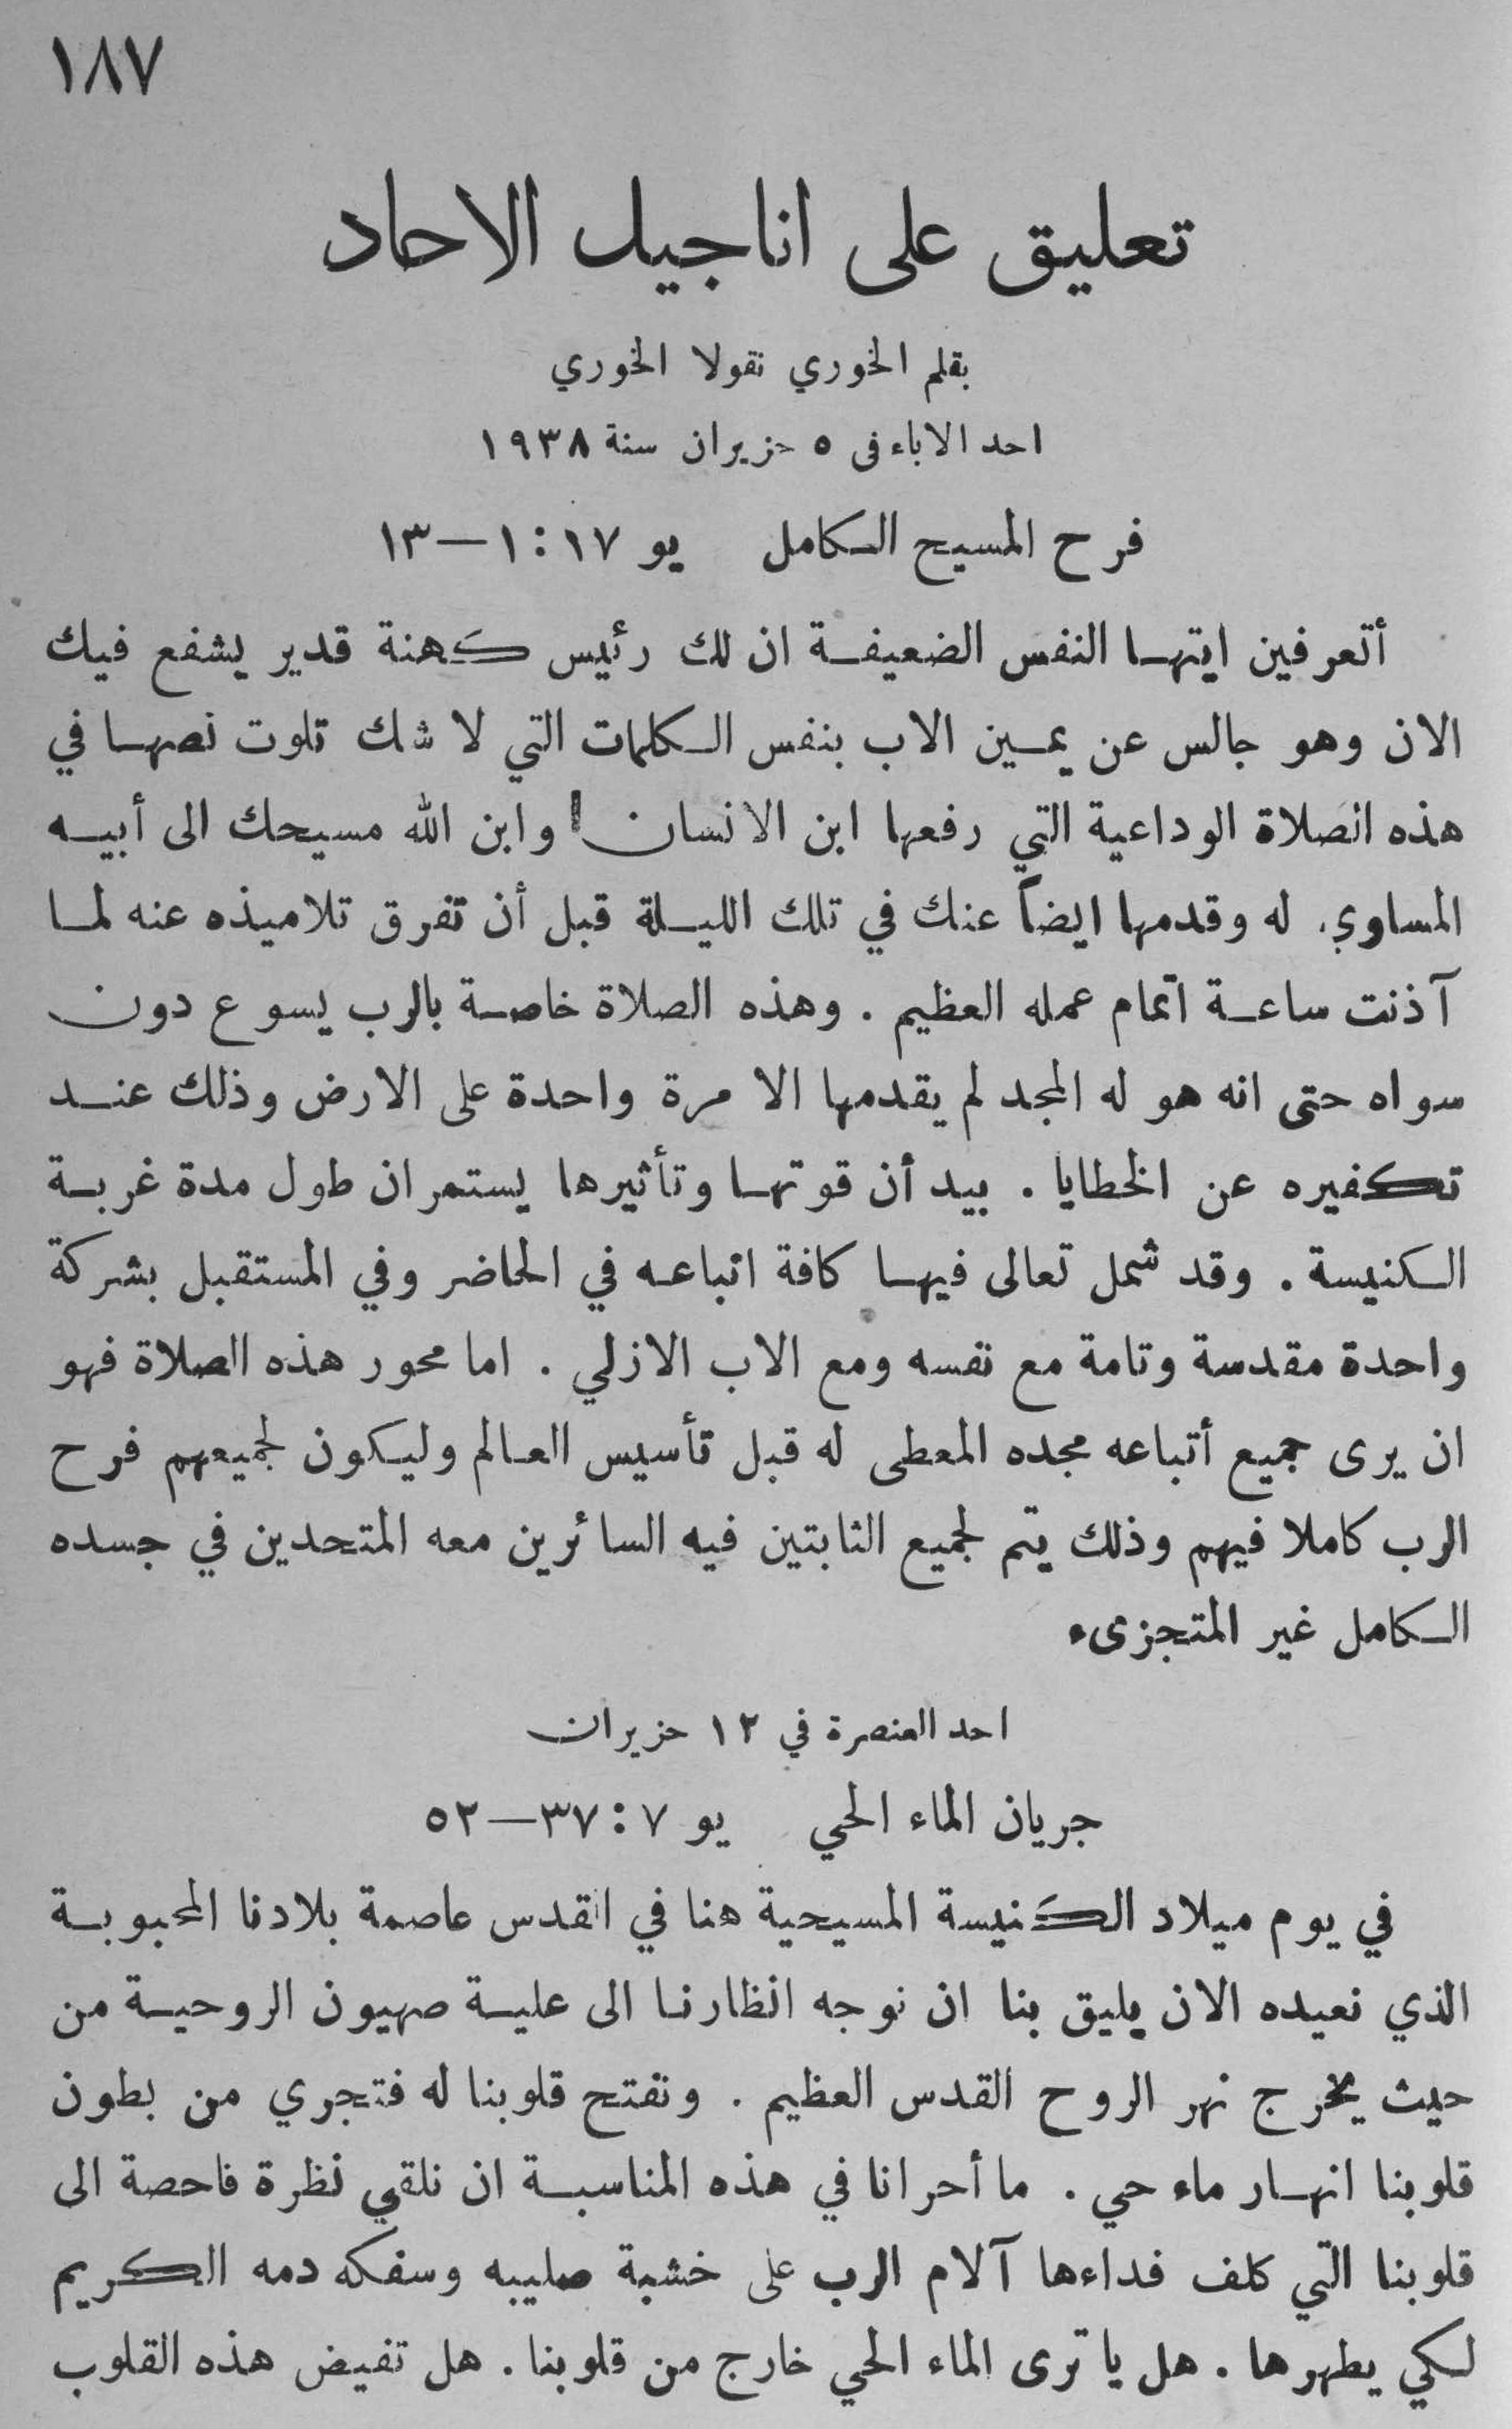 ١٨٧
تعليق على اناجيل الاحاد
بقلم الخوري نقولا الخوري
احد الاباء في ٥ حزيران سنة ١٩٣٨
فرح المسيح الكامل يو ١٧:١—١٣
أتعرفين ايتها النفس الضعيفة ان لك رئيس كهنة قدير يشفع فيك
الان وهو جالس عن يمين الاب بنفس الكلمات التي لا شك تلوت نصها في
هذه الصلاة الوداعية التي رفعها ابن الانسان وابن الله مسيحك الى أبيه
المساوي له وقدمها ايضاً عنك في تلك الليلة قبل أن تفرق تلاميذه عنه لما
آذنت ساعة اتمام عمله العظيم . وهذه الصلاة خاصة بالرب يسوع دون
سواه حتى انه هو له المجد لم يقدمها الا مرة واحدة على الارض وذلك عند
تكفيره عن الخطايا . بيد أن قوتها وتأثيرها يستمران طول مدة غربة
الكنيسة . وقد شمل تعالى فيها كافة اتباعه في الحاضر وفي المستقبل بشركة
واحدة مقدسة وتامة مع نفسه ومع الاب الازلي . اما محور هذه الصلاة فهو
ان يرى جميع أتباعه مجده المعطى له قبل تأسيس العالم وليكون لجميعهم فرح
الرب كاملا فيهم وذلك يتم لجميع الثابتين فيه السائرين معه المتحدين في جسده
الكامل غير المتجزىء
احد العنصرة في ١٢ حزيران
جريان الماء الحي يو ٧:٣٧—٥٢
في يوم ميلاد الكنيسة المسيحية هنا في القدس عاصمة بلادنا المحبوبة
الذي نعيده الان يليق بنا ان نوجه انظارنا الى علية صهيون الروحية من
حيث يخرج نهر الروح القدس العظيم . ونفتح قلوبنا له فتجري من بطون
قلوبنا انهار ماء حي . ما أحرانا في هذه المناسبة ان نلقي نظرة فاحصة الى
قلوبنا التي كلف فداءها آلام الرب على خشبة صليبه وسفكه دمه الكريم
لكي يطهرها . هل يا ترى الماء الحي خارج من قلوبنا . هل تفيض هذه القلوب